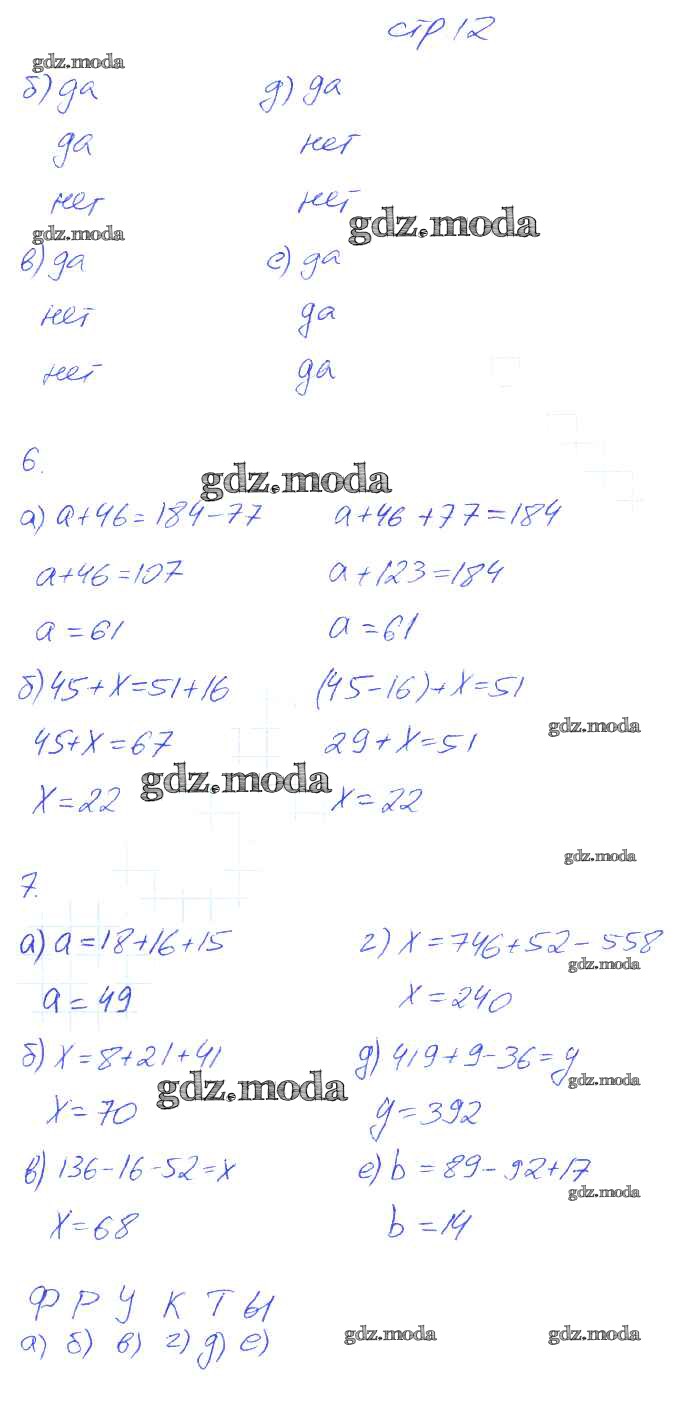 стр 12
gdz.moda
б) да д) да
да нет
нет нет
gdz.moda gdz.moda
в) да е) да
нет да
нет да
6.
gdz.moda
а) a+46=184-77 a+46+77=184
a+46=107 a+123=184
a=61 a=61
б) 45+x=51+16 (45-16)+x=51
gdz.moda
45+x=67 29+x=51
gdz.moda
x=22 x=22
gdz.moda
7.
а) a=18+16+15 г) x=746+52-558
gdz.moda
a=49 x=240
б) x=8+21+41 д) 419+9-36=y
gdz.moda gdz.moda
x=70 y=392
в) 136-16-52=x е) b=89-92+17
gdz.moda
x=68 b=14
Ф Р У К Т Ы
а) б) в) г) д) е)
gdz.moda gdz.moda